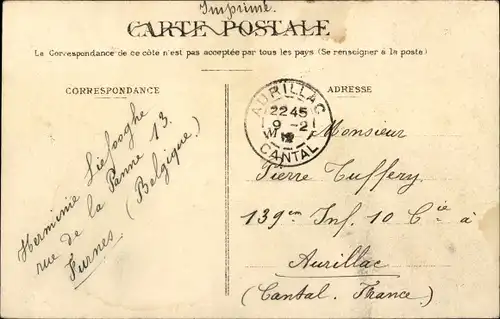 Imprimé.
CARTE POSTALE
La Correspondance de ce côté n'est pas acceptée par tous les pays (Se renseigner à la poste)
CORRESPONDANCE
Herminie Liefooghe
rue de la Panne 13.
Furnes (Belgique)
AURILLAC
2245
9 -2
CANTAL
ADRESSE
Monsieur
Pierre Tuffery
139em Inf. 10 Cie à
Aurillac
(Cantal. France)